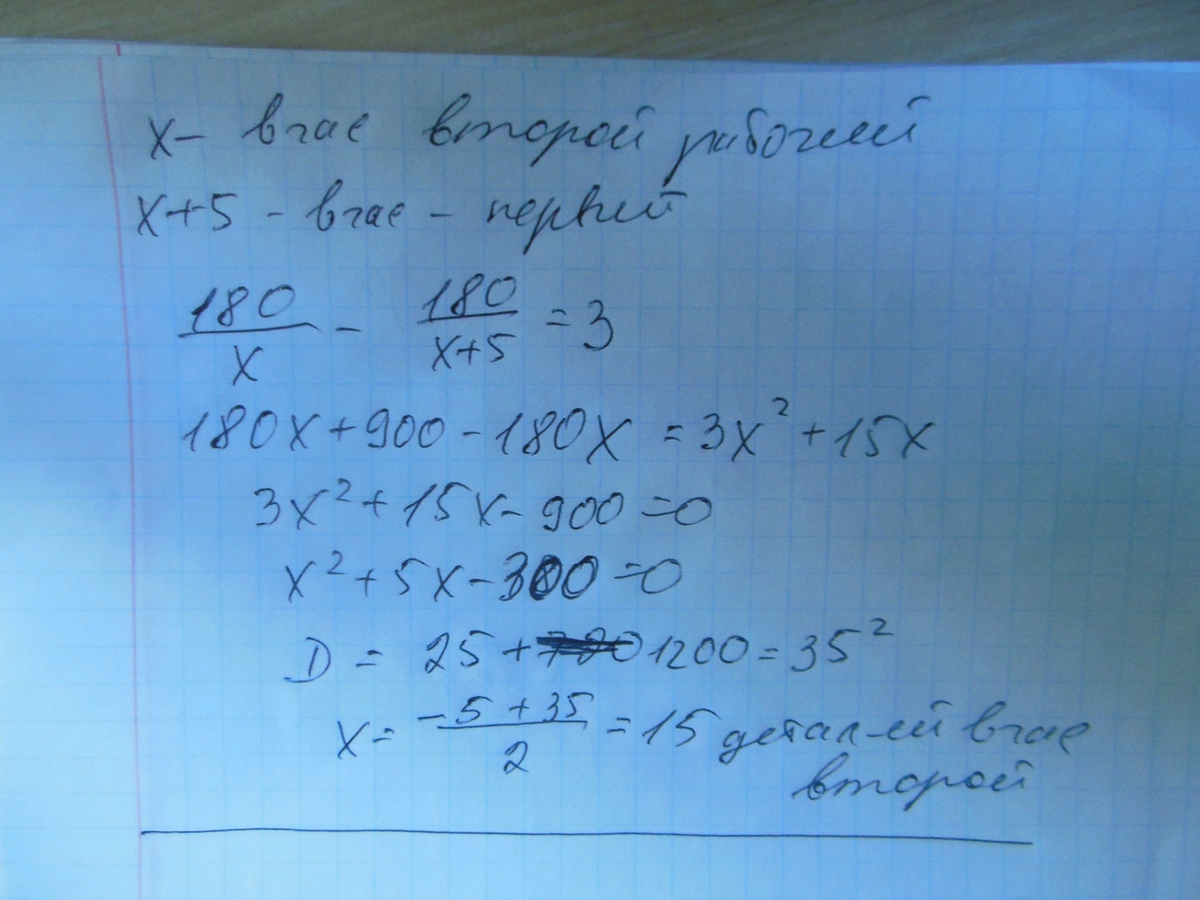 x - в час второй рабочий
x+5 - в час - первый
180/x - 180/(x+5) = 3
180x + 900 - 180x = 3x² + 15x
3x² + 15x - 900 = 0
x² + 5x - 300 = 0
D = 25 + 1200 = 35²
x = (-5 + 35)/2 = 15 деталей в час
второй